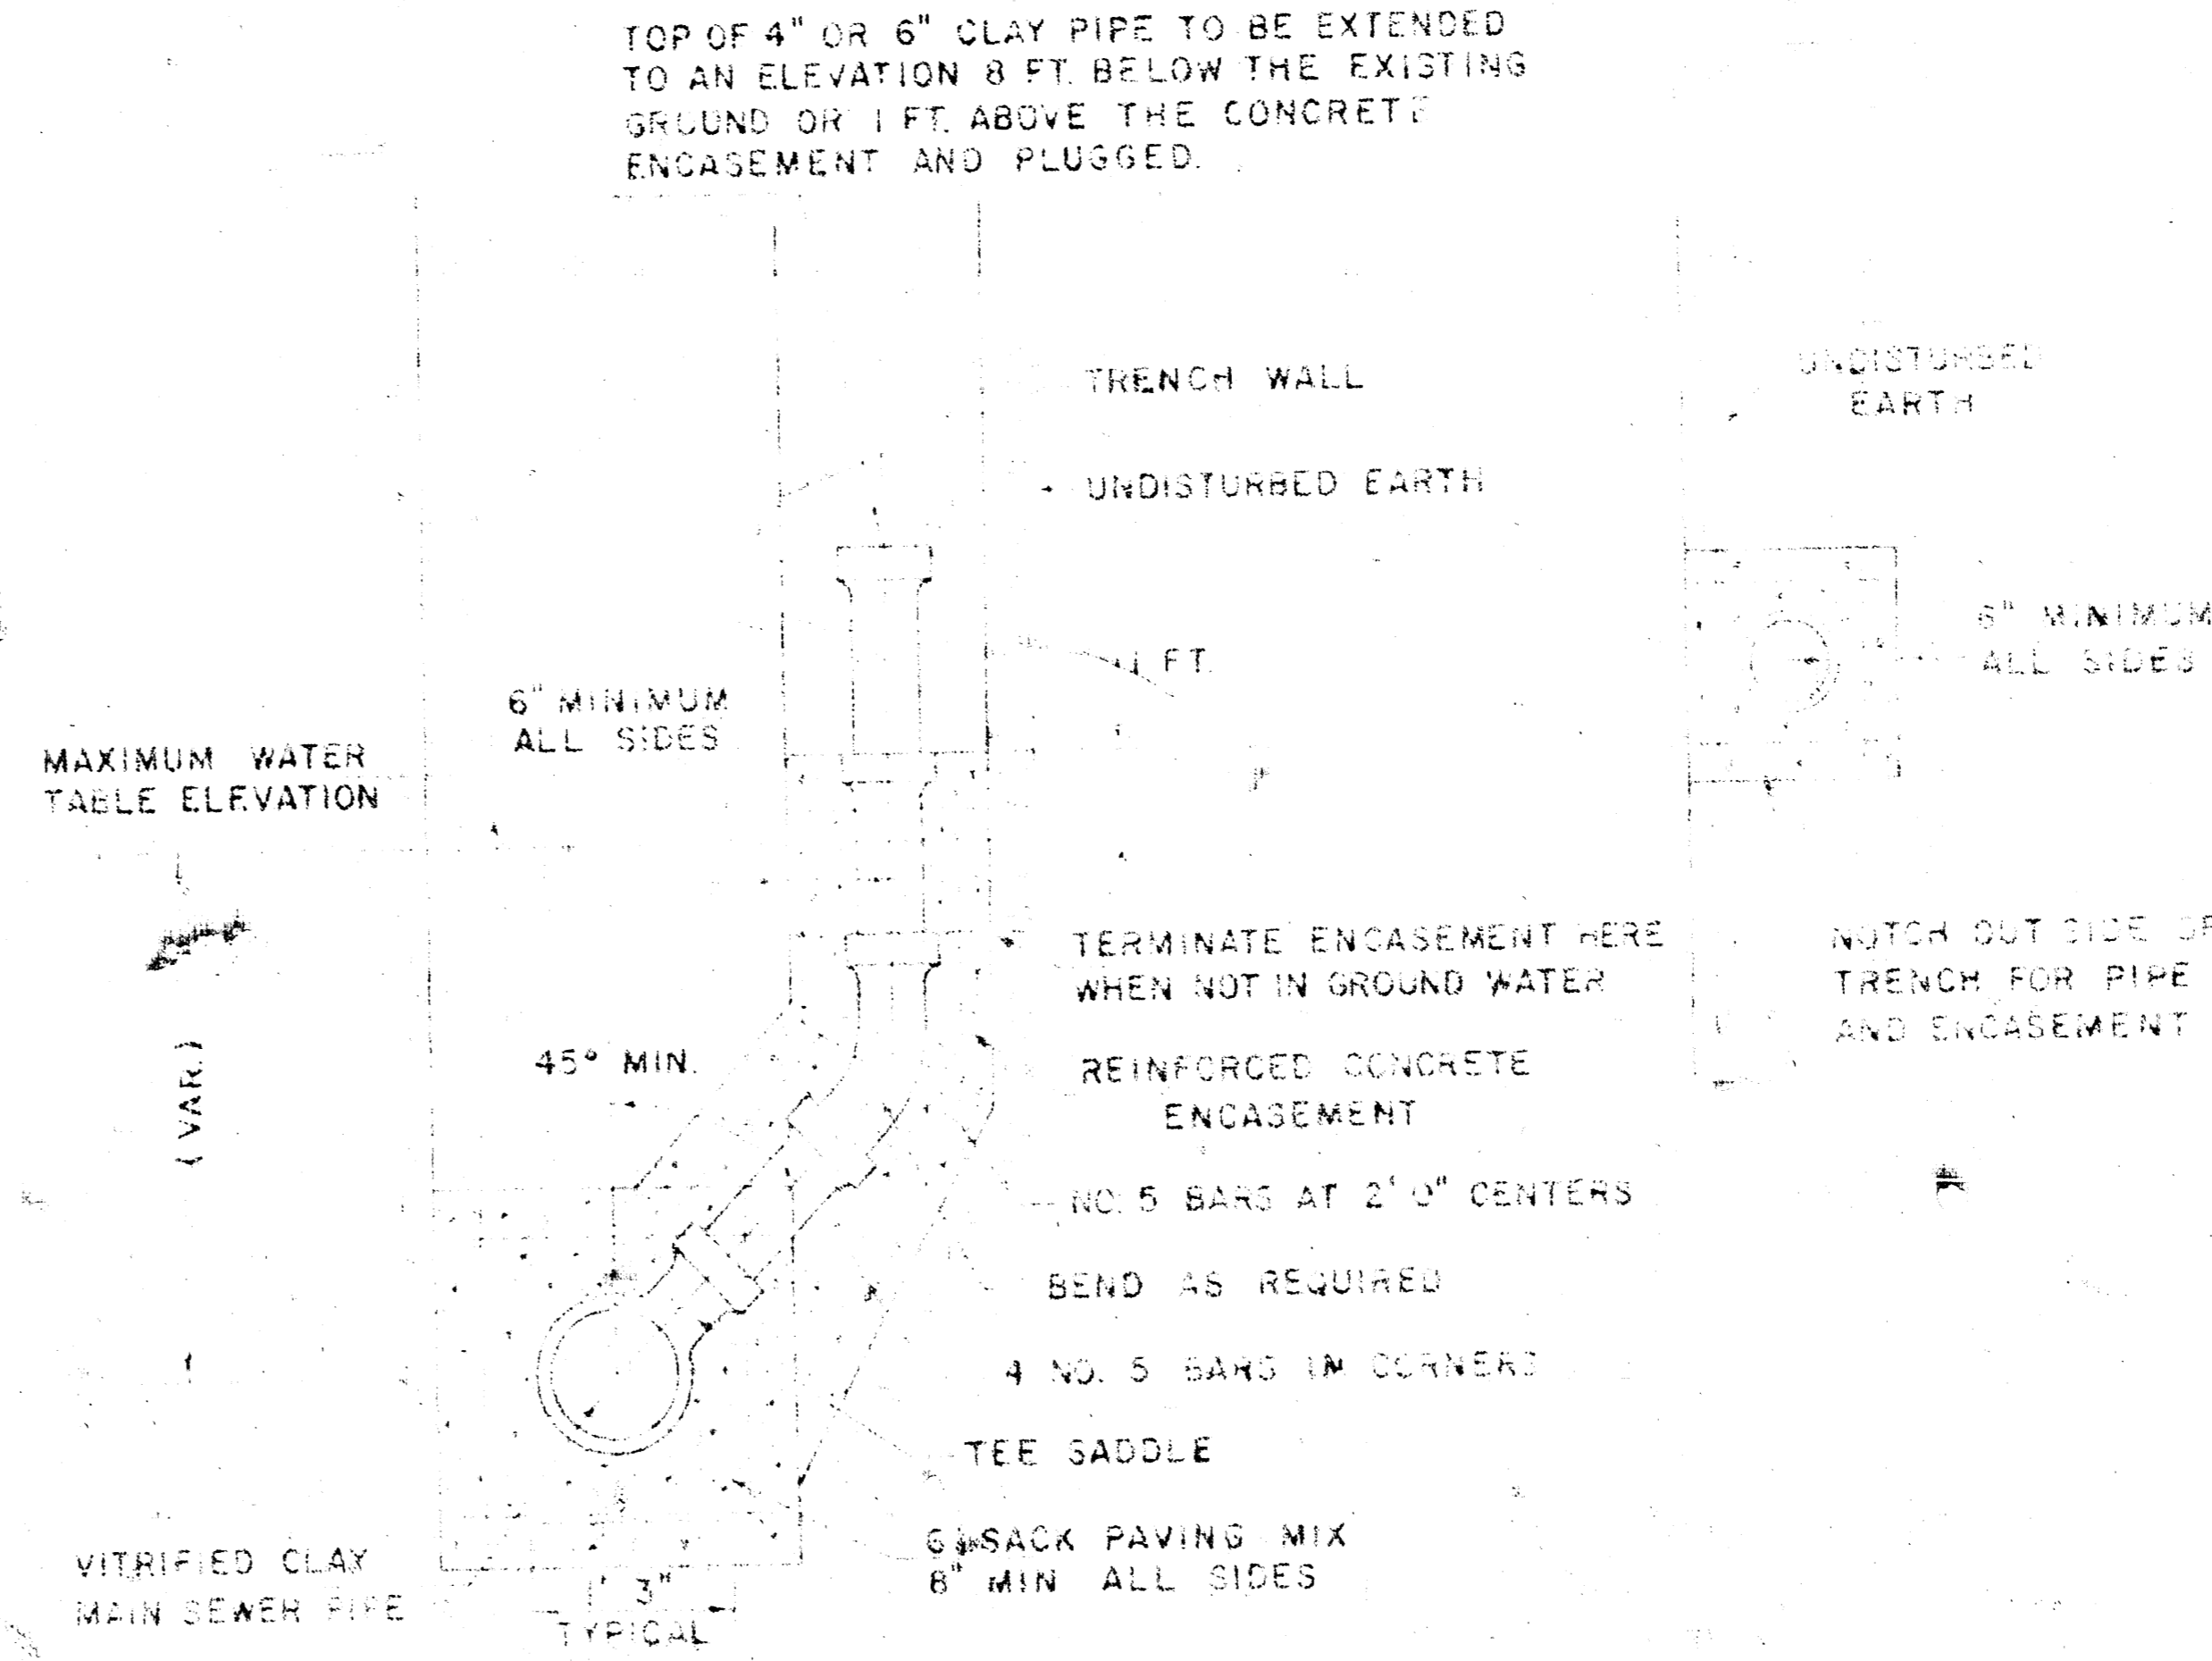 TOP OF 4" OR 6" CLAY PIPE TO BE EXTENDED
TO AN ELEVATION 8 FT. BELOW THE EXISTING
GROUND OR 1 FT. ABOVE THE CONCRETE
ENCASEMENT AND PLUGGED.
TRENCH WALL
UNDISTURBED
EARTH
UNDISTURBED EARTH
1 FT.
6" MINIMUM
ALL SIDES
6" MINIMUM
ALL SIDES
MAXIMUM WATER
TABLE ELEVATION
TERMINATE ENCASEMENT HERE
WHEN NOT IN GROUND WATER
NOTCH OUT SIDE OF
TRENCH FOR PIPE
AND ENCASEMENT
45° MIN.
(VAR.)
REINFORCED CONCRETE
ENCASEMENT
NO. 5 BARS AT 2' 0" CENTERS
BEND AS REQUIRED
4 NO. 5 BARS IN CORNERS
TEE SADDLE
SACK PAVING MIX
8" MIN ALL SIDES
VITRIFIED CLAY
MAIN SEWER PIPE
3"
TYPICAL